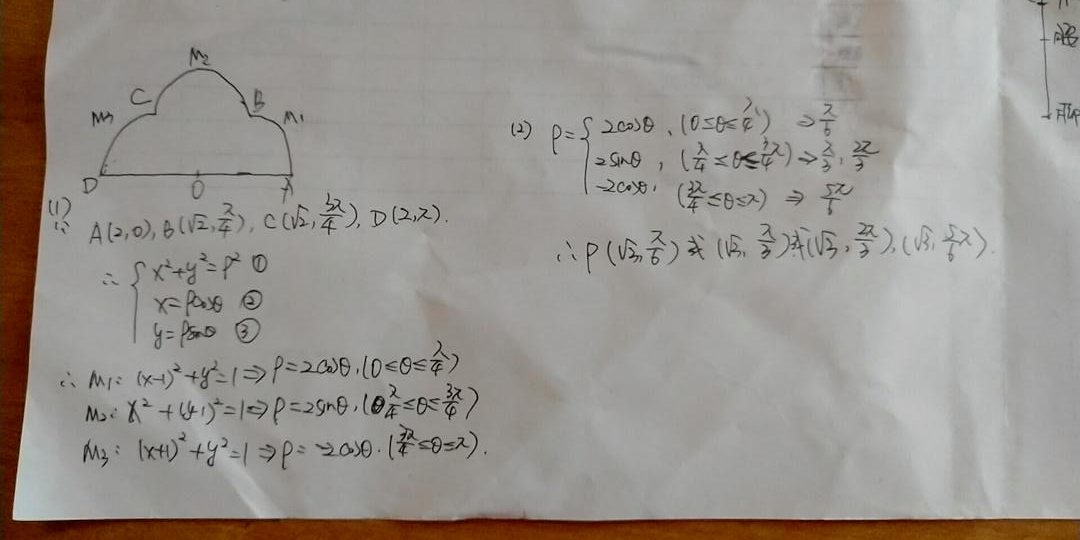 M₂
C
B
M₃
M₁
D
O
A
(1)
∵ A(2,0), B(√2, π/4), C(√2, 3π/4), D(2,π).
∴ { x²+y²=ρ² ①
x=ρcosθ ②
y=ρsinθ ③
∴ M₁: (x-1)²+y²=1⇒ρ=2cosθ.(0≤θ≤π/4)
M₂: x²+(y-1)²=1⇒ρ=2sinθ,(π/4≤θ≤3π/4)
M₃: (x+1)²+y²=1⇒ρ=-2cosθ.(3π/4≤θ≤π).
(2) ρ= { 2cosθ, (0≤θ≤π/4) ⇒ π/6
2sinθ, (π/4≤θ≤3π/4) ⇒ π/3, 2π/3
-2cosθ, (3π/4≤θ≤π) ⇒ 5π/6
∴ P(√3, π/6) 或 (√3, π/3) 或 (√3, 2π/3), (√3, 5/6π).